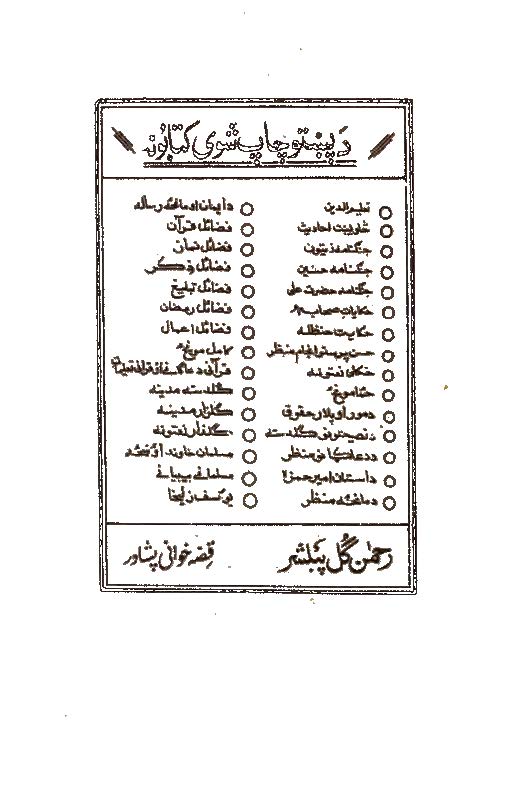 د پښتو چاپ شوی کتابونه
تعلیم الدین
څلویښت احادیث
جنګنامه زیتون
جنګنامه حسنین
جنګنامه حضرت علی
حکایات صحابه
حکایت حنظله
حسن پرستو انجام منظر
ښکلی نغتونه
خه مونږ
د مور او پلار حقوق
د نصیحتونو ګلدسته
د دعاګانو منظر
داستان امیر حمزه
د مانځه منظر
د ایمان او مانځه رساله
فضائل قرآن
فضائل نماز
فضائل ذکر
فضائل تبلیغ
فضائل رمضان
فضائل اعمال
کامل مونږ
قرآنی دعاګانې
ګلدسته مدینه
ګلزار مدینه
ګلفام نغتونه
مسلمان خاوند او ښځه
مسلمانې بیبیانې
یوسف زلیخا
رحمٰن ګل پبلشر
قصه خوانی پشاور